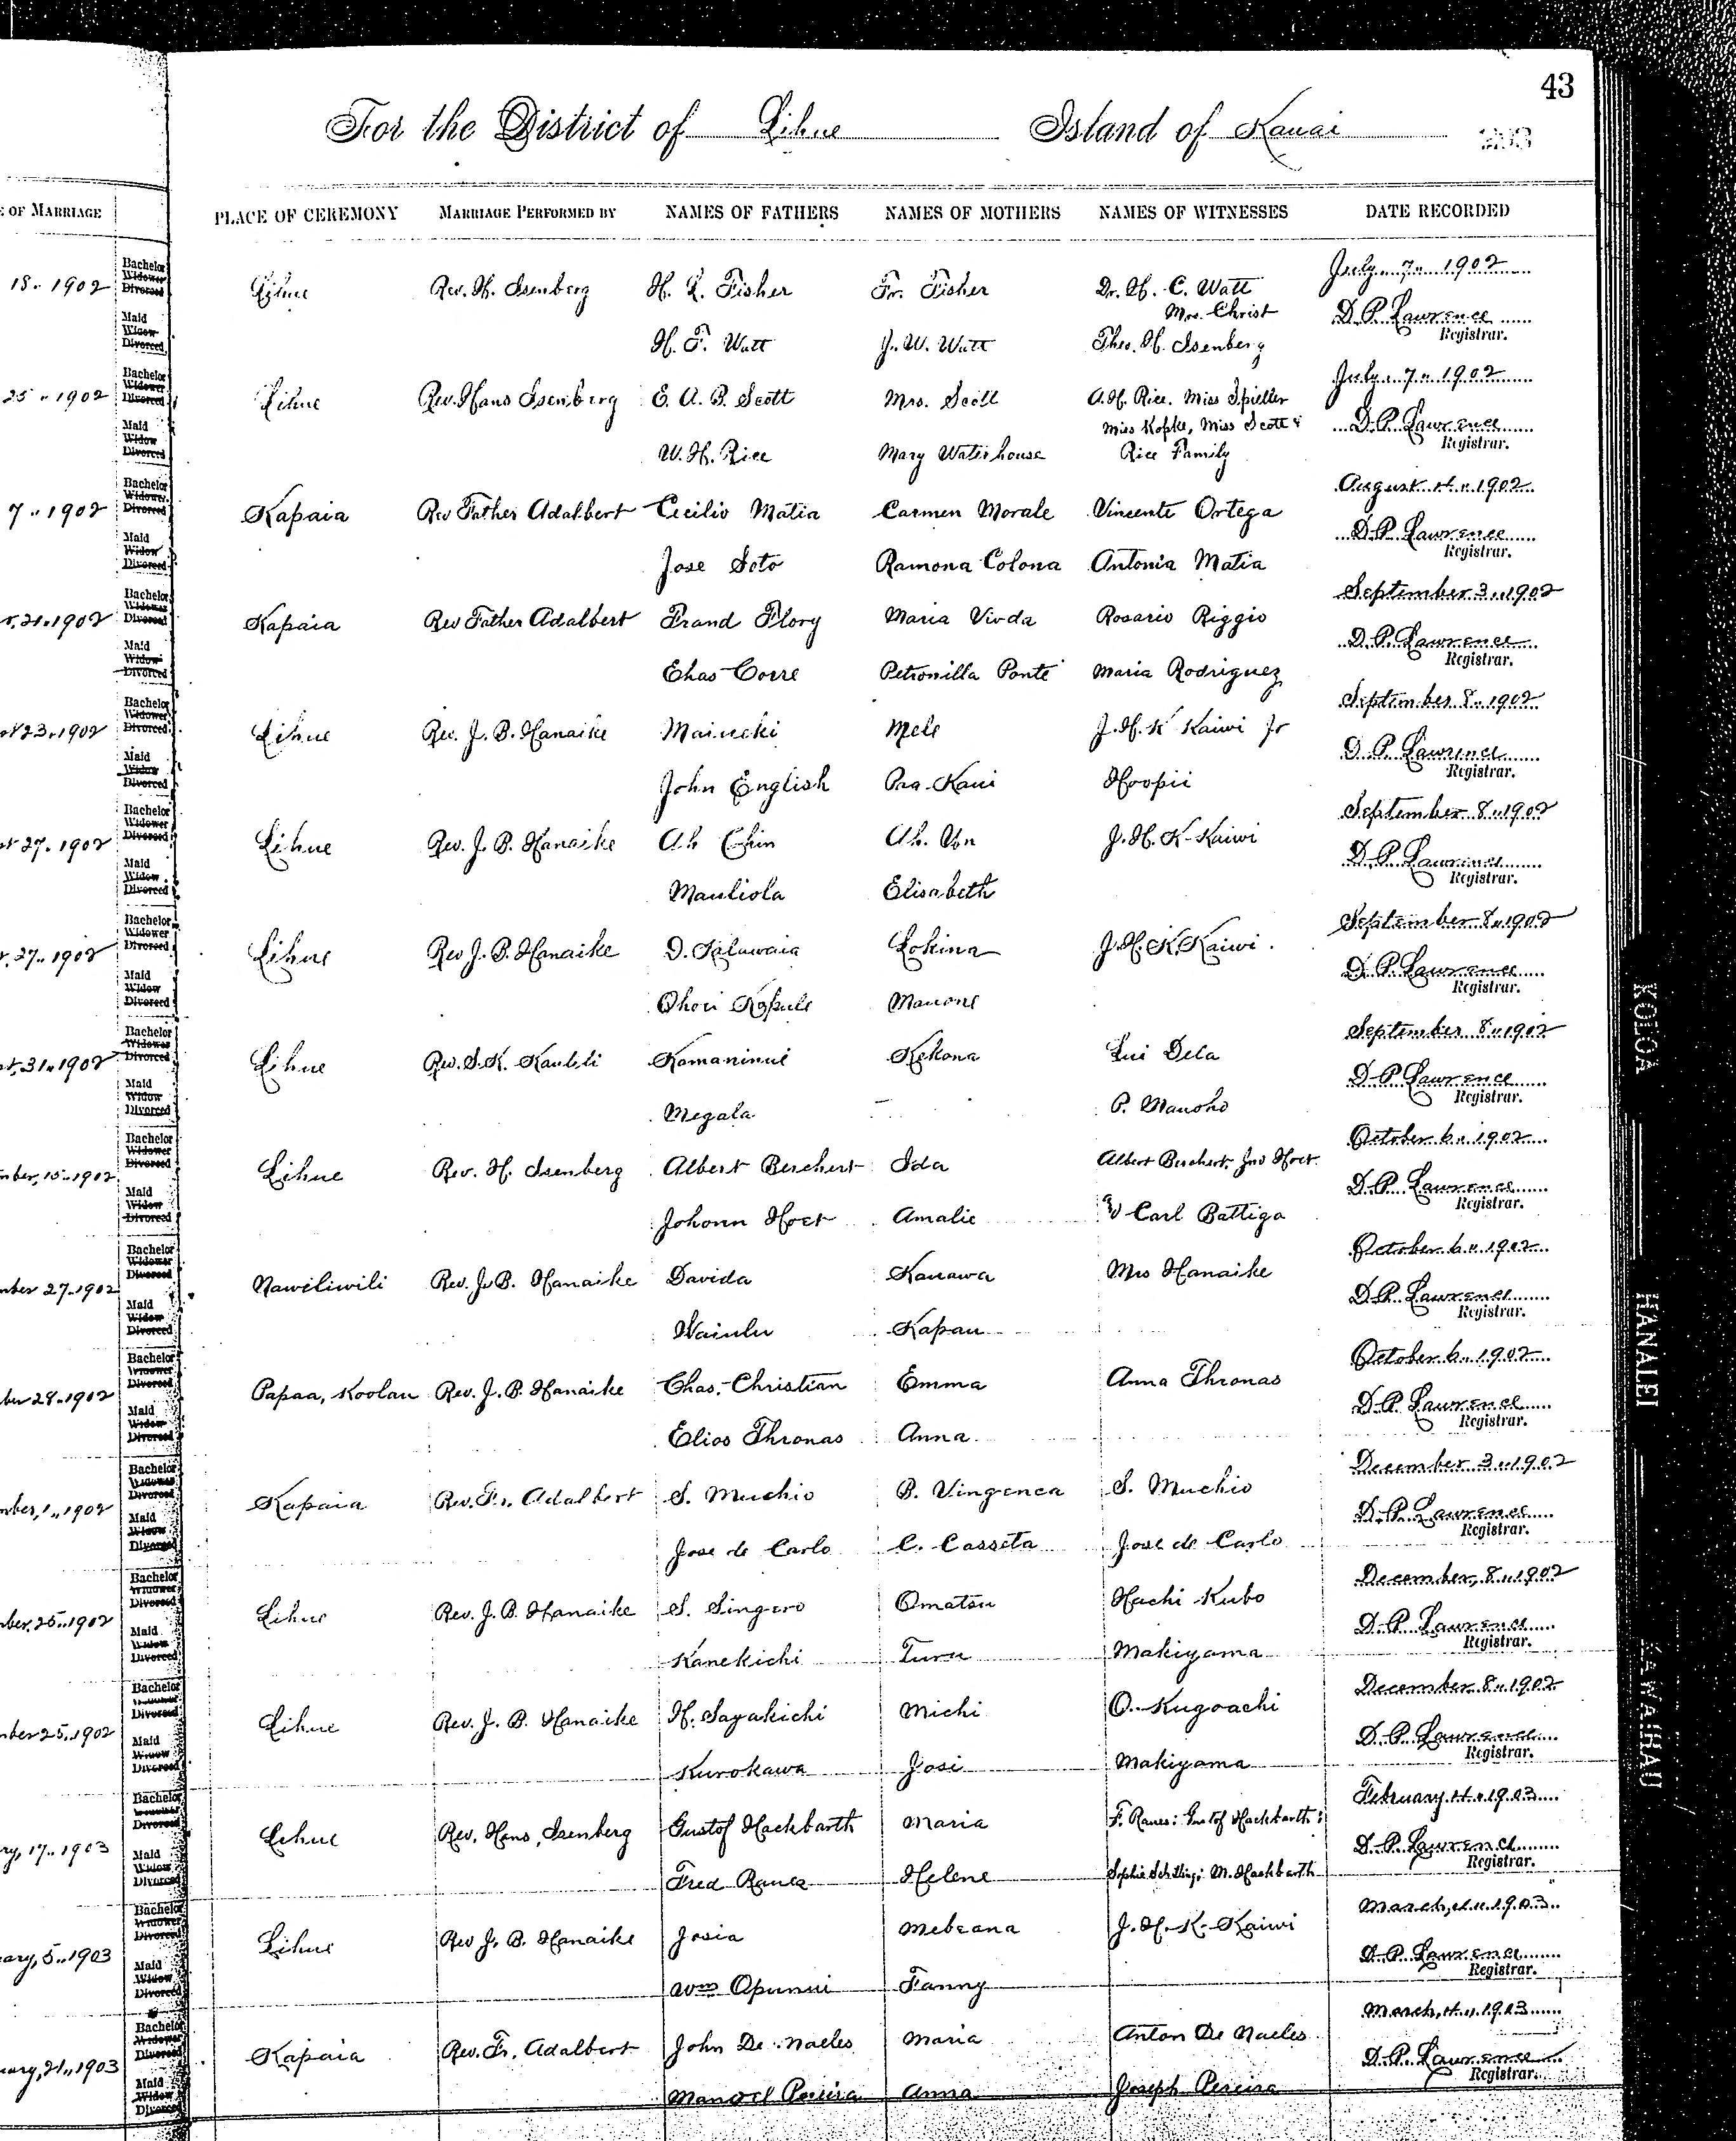 43
For the District of Lihue Island of Kauai
OF MARRIAGE PLACE OF CEREMONY MARRIAGE PERFORMED BY NAMES OF FATHERS NAMES OF MOTHERS NAMES OF WITNESSES DATE RECORDED
18. 1902 Bachelor Widower Divorced Lihue Rev. H. Isenberg H. L. Fisher Fr. Fisher Dr. H. C. Watt July 7 1902
Mrs. Christ
Maid Widow Divorced H. F. Watt J. W. Watt Theo. H. Isenberg D. P. Lawrence Registrar.
25 1902 Bachelor Widower Divorced Lihue Rev. Hans Isenberg E. A. B. Scott Mrs. Scott A. H. Rice. Miss Spieller July 7 1902
Miss Kopke, Miss Scott &
Maid Widow Divorced W. H. Rice Mary Waterhouse Rice Family D. P. Lawrence Registrar.
7 1902 Bachelor Widower Divorced Kapaia Rev Father Adalbert Cecilio Matia Carmen Morale Vincente Ortega August 4 1902
Maid Widow Divorced Jose Soto Ramona Colona Antonia Matia D. P. Lawrence Registrar.
21 1902 Bachelor Widower Divorced Kapaia Rev Father Adalbert Frand Flory Maria Vivda Rosario Riggio September 3 1902
Maid Widow Divorced Chas Corre Petronilla Ponte Maria Rodriguez D. P. Lawrence Registrar.
23 1902 Bachelor Widower Divorced Lihue Rev. J. B. Hanaike Maineki Mele J. H. K Kaiwi Jr September 8 1902
Maid Widow Divorced John English Paa-Kaui Hoopii D. P. Lawrence Registrar.
27 1902 Bachelor Widower Divorced Lihue Rev. J. B. Hanaike Ah Chin Ah. Von J. H. K-Kaiwi September 8 1902
Maid Widow Divorced Mauliola Elisabeth D. P. Lawrence Registrar.
27 1902 Bachelor Widower Divorced Lihue Rev J. B. Hanaike D. Kaluwaia Lokina J. H. K. Kaiwi. September 8 1902
Maid Widow Divorced Ohoi Kapule Manone D. P. Lawrence Registrar.
31 1902 Bachelor Widower Divorced Lihue Rev. S. K. Kaulili Kamaninui Kekona Lui Dela September 8 1902
Maid Widow Divorced Megala P. Manoho D. P. Lawrence Registrar.
mber, 15 1902 Bachelor Widower Divorced Lihue Rev. H. Isenberg Albert Berchert Ida Albert Berchert, Jno Hoet October 6 1902
Maid Widow Divorced Johann Hoet Amalie & Carl Battiga D. P. Lawrence Registrar.
mber 27 1902 Bachelor Widower Divorced Nawiliwili Rev. J. B. Hanaike Davida Kanawa Mrs Hanaike October 6 1902
Maid Widow Divorced Wainlu Kapau D. P. Lawrence Registrar.
ber 28 1902 Bachelor Widower Divorced Papaa, Koolau Rev. J. B. Hanaike Chas. Christian Emma Anna Thronas October 6 1902
Maid Widow Divorced Elios Thronas Anna D. P. Lawrence Registrar.
mber, 1 1902 Bachelor Widower Divorced Kapaia Rev. Fr. Adalbert S. Muchio B. Vingenca S. Muchio December 3 1902
Maid Widow Divorced Jose de Carlo C. Casseta Jose de Carlo D. P. Lawrence Registrar.
mber, 25 1902 Bachelor Widower Divorced Lihue Rev. J. B. Hanaike S. Singero Omatsu Hachi Kubo December, 8 1902
Maid Widow Divorced Kanekichi Turu Makiyama D. P. Lawrence Registrar.
mber 25 1902 Bachelor Widower Divorced Lihue Rev. J. B. Hanaike H. Sayakichi Michi O. Kugoachi December 8 1902
Maid Widow Divorced Kurokawa Josi Makiyama D. P. Lawrence Registrar.
ry, 17 1903 Bachelor Widower Divorced Lihue Rev. Hans, Isenberg Gustof Hackbarth Maria F. Ranes: Gustof Hackbarth: February 4 1903
Maid Widow Divorced Fred Ranes Helene Sophie Schilling: M. Hackbarth D. P. Lawrence Registrar.
ary, 5 1903 Bachelor Widower Divorced Lihue Rev J. B. Hanaike Josia Mebeana J. H. K-Kaiwi March, 4 1903
Maid Widow Divorced Wm Apunui Fanny D. P. Lawrence Registrar.
uary, 21 1903 Bachelor Widower Divorced Kapaia Rev. Fr. Adalbert John De Naeles Maria Anton De Naeles March, 4 1903
Maid Widow Divorced Manoel Pereira Anna Joseph Pereira D. P. Lawrence Registrar.
KOLOA
HANALEI
KAWAIHAU